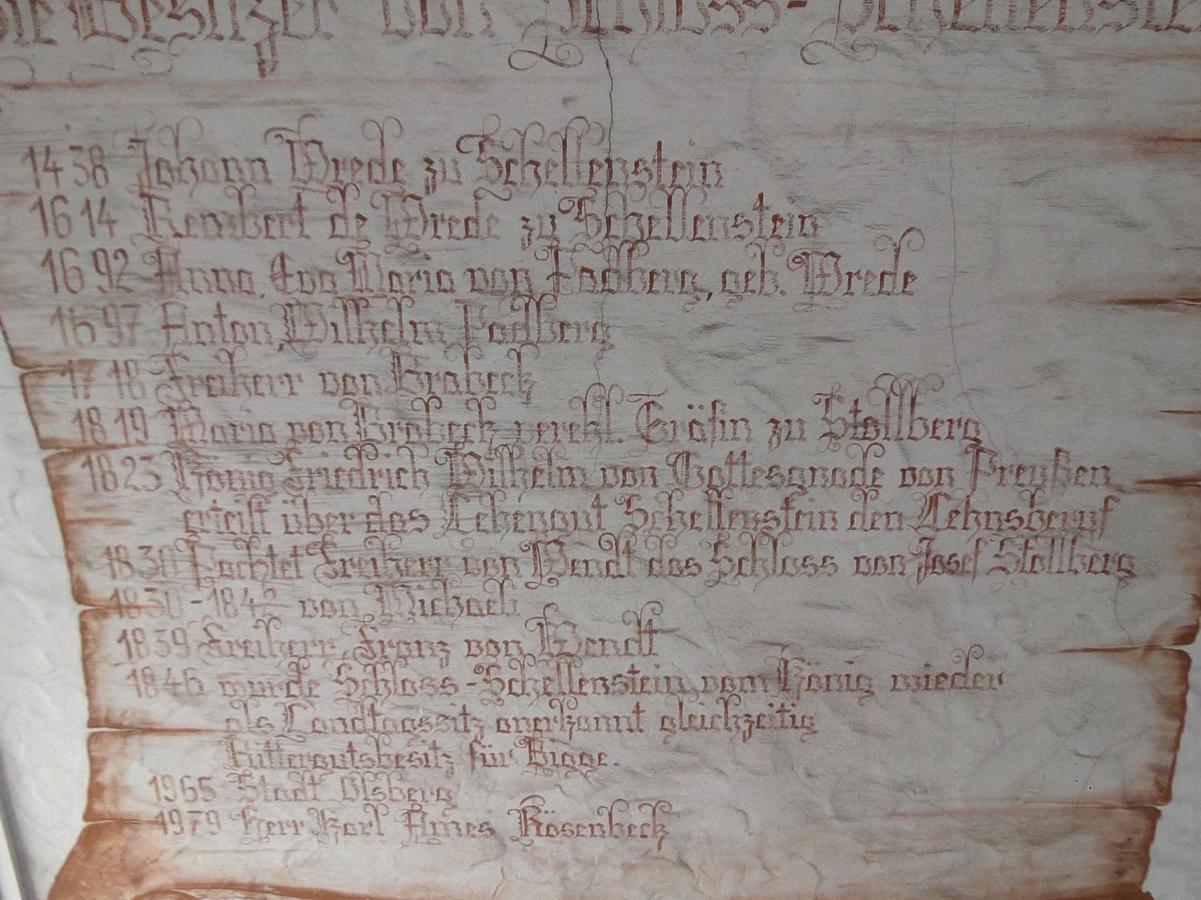 Die Besitzer von Schloss-Schellenstein
1438 Johann Wrede zu Schellenstein
1614 Rembert de Wrede zu Schellenstein
1692 Anna, Eva Maria von Padberg, geb. Wrede
1697 Anton, Wilhelm Padberg
1718 Freiherr von Brabeck
1819 Maria von Brabeck verehl. Gräfin zu Stollberg
1823 König Friedrich Wilhelm von Gottesgnade von Preußen
erteilt über das Lehengut Schellenstein den Lehnsberuf
1830 Pachtet Freiherr von Wendt das Schloss von Josef Stollberg
1830-1842 von Michaeli
1839 Freiherr Franz von Wendt
1846 wurde Schloss-Schellenstein vom König wieder
als Landtagssitz anerkannt gleichzeitig
Rittergutsbesitz für Bigge.
1965 Stadt Olsberg
1979 Herr Karl Ames Rösenbeck